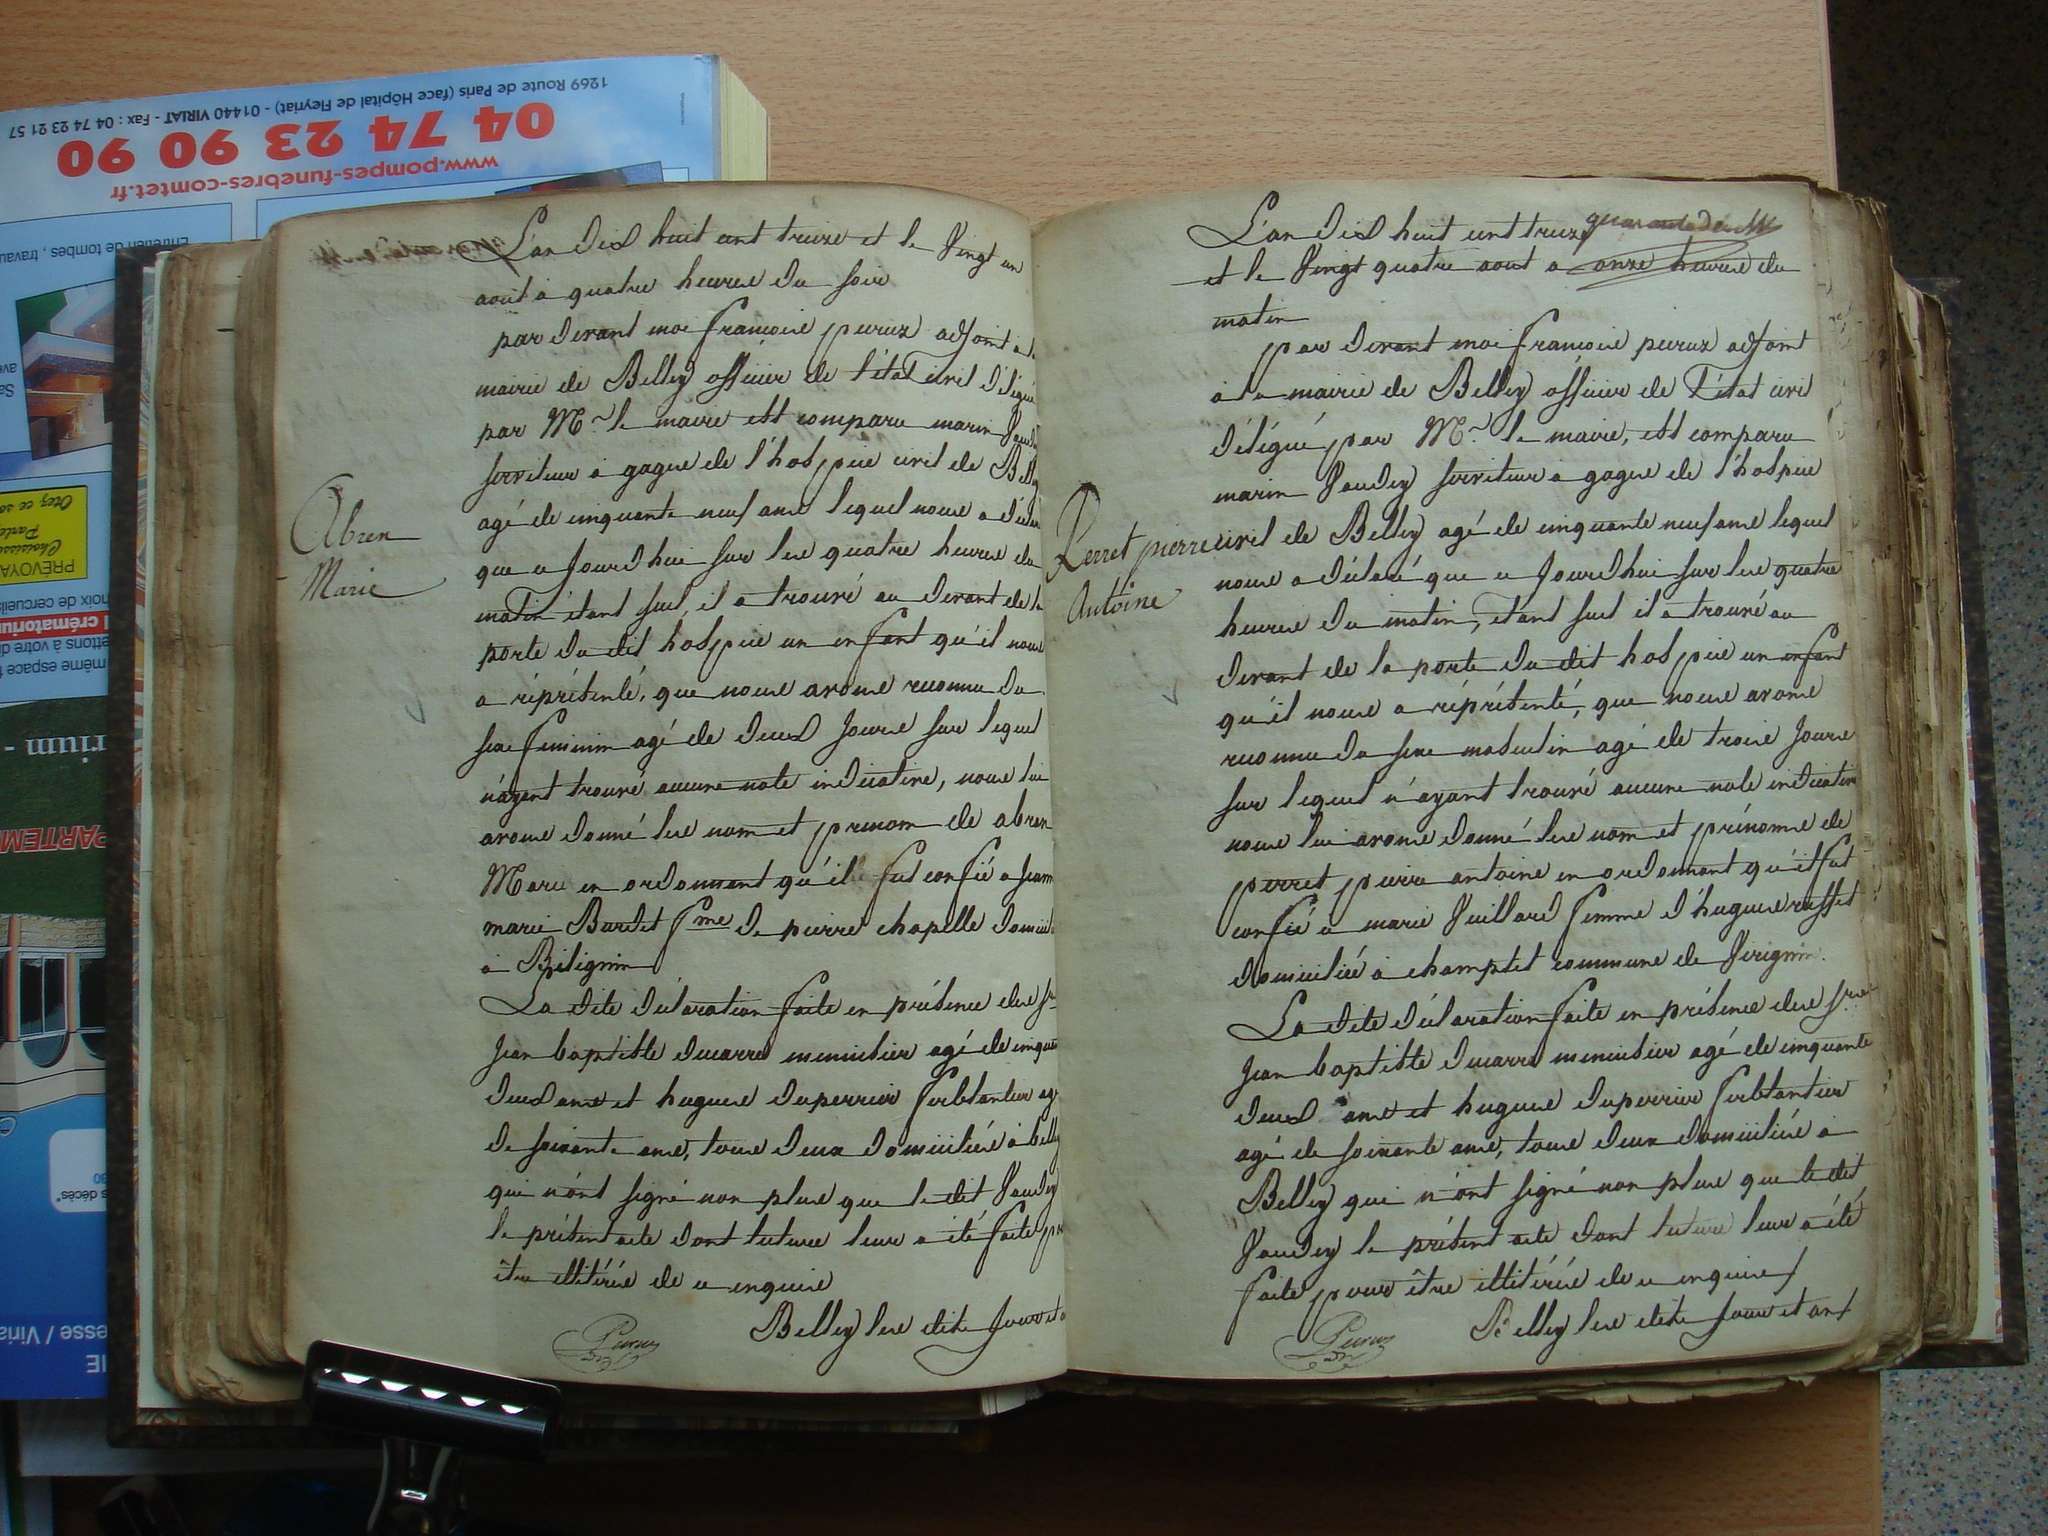 1269 Route de Paris (face Hôpital de Fleyriat) - 01440 VIRIAT - Fax : 04 74 23 21 57
04 74 23 90 90
www.pompes-funebres-comtet.fr
Entretien de tombes, travau
PRÉVOYA
hoix de cercueils
l crématorium
même espace
rium -
PARTEM
s décès"
esse / Viria
Abren
Marie
L'an dix huit cent treize et le vingt un
aout a quatre heures du soir
par devant moi françois peruz adjoint a la
mairie de Belley officier de l'état civil délégué
par Mr. le maire est comparu marin Vaudey
serviteur a gages de l'hospice civil de Belley
agé de cinquante neuf ans lequel nous a déclaré
que ce jourd'hui sur les quatre heures du
matin étant seul, il a trouvé au devant de la
porte du dit hospice un enfant qu'il nous
a réprésenté, que nous avons reconnu du
sexe feminin agé de deux jours sur lequel
n'ayant trouvé aucune note indicative, nous lui
avons donné les nom et prenom de abren
Marie en ordonnant qu'il fut confié a jeanne
marie Bardet fme de pierre chapelle domicilié
a Billignin
La dite déclaration faite en présence des srs
jean baptiste ducarre menuisier agé de cinquante
deux ans et hugues duperrier ferblantier agé
de soixante ans, tous deux domiciliés a belley
qui n'ont signé non plus que le dit Vaudey
le présent acte dont lecture leur a été faite pour
être illitérés de ce enquis
Belley les dits jour et an
Peruz
adj
quarante deux
L'an dix huit cent treize
et le vingt quatre aout a onze heures du
matin
par devant moi françois peruz adjoint
a la mairie de Belley officier de l'état civil
délégué par Mr. le maire, est comparu
marin Vaudey serviteur a gages de l'hospice
civil de Belley agé de cinquante neuf ans lequel
nous a déclaré que ce jourd'hui sur les quatre
heures du matin, étant seul il a trouvé au
devant de la porte du dit hospice un enfant
qu'il nous a réprésenté, que nous avons
reconnu du sexe masculin agé de trois jours
sur lequel n'ayant trouvé aucune note indicative
nous lui avons donné les nom et prénoms de
perret pierre antoine en ordonnant qu'il fut
confié a marie Vuillard femme d'hugues ruffet
domiciliée a champtet commune de Virignin.
La dite déclaration faite en présence des srs
jean baptiste ducarre menuisier agé de cinquante
deux ans et hugues duperrier ferblantier
agé de soixante ans, tous deux domiciliés a
Belley qui n'ont signé non plus que le dit
Vaudey le présent acte dont lecture leur a été
faite pour être illitérés de ce enquis
Belley les dits jour et an
Peruz
adj
Perret pierre
Antoine